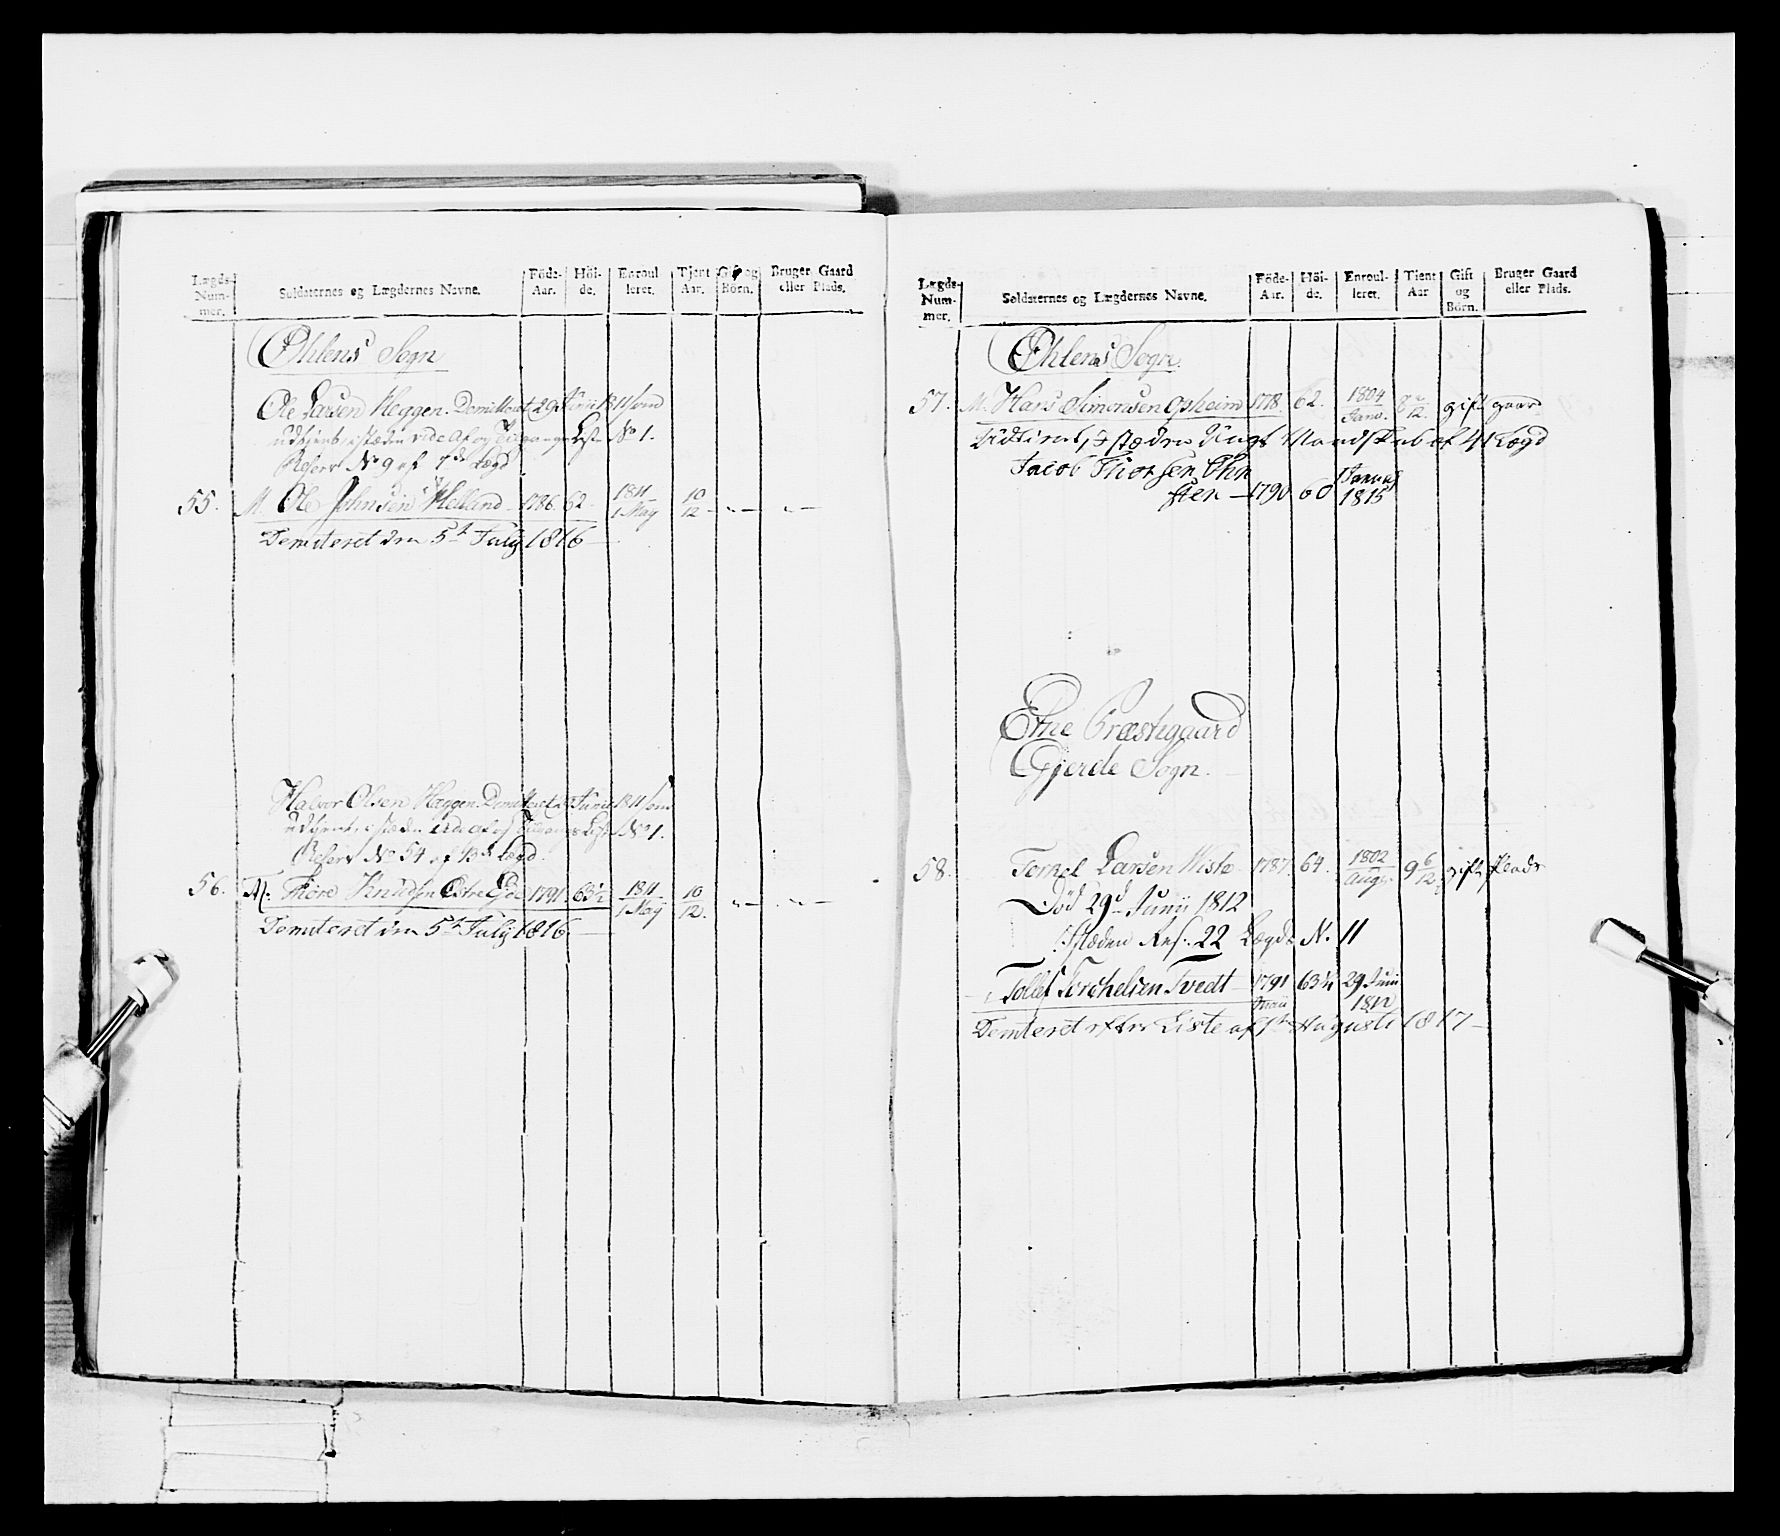 Lægds-Num-mer. Soldaternes og Lægdernes Navne. Föde-Aar. Höi-de. Enroul-leret. Tjent Aar. Gift og Börn. Bruger Gaard eller Plads.
Øhlens Sogn
Ole Larsen Heggen. Demitteret 29 Junii 1811 som
udtjent, istæden vide Af og Tilgangs Liste No 1.
Reserv No 9 af 7de Lægd
55. M. Ole Johnsen Helland 1786 62. 1811 1 May 10/12 - „ - „ -
Demiteret den 5te July 1816
Halvor Olsen Heggen. Demitteret 29 Junii 1811 som
udtjent, istæden vide af og Tilgangs Liste No 1.
Reserv No 54 af 13de Lægd.
56. M. Thore Knudsen Østre Eide 1791. 63½ 1811 1 May 10/12. - „ - „ -
Demiteret den 5te July 1816.
Lægds-Num-mer. Soldaternes og Lægdernes Navne. Föde-Aar. Höi-de. Enroul-leret. Tient Aar Gift og Börn. Bruger Gaard eller Plads.
Øhlens Sogn.
57. M. Hans Simonsen Opheim 1778. 62. 1804 Janv. 8/12. gift gaard
Udtient, I stæden Ungt Mandskab af 41 Lægd
Jacob Thorsen
1790 60 1 Januar 1815
Etne Præstegaard
Gjerde Sogn.
58. Torkel Larsen Miste 1787. 64. 1802 Aug. 9 6/12 gift Plads
Død 29d Junii 1812
Istæden Res: 22 Lægds N. 11
Tollef Torchelsen Tvedt 1791 63¼ 29 Junii
1812
Demiteret efter Liste af 1te Augusti 1817